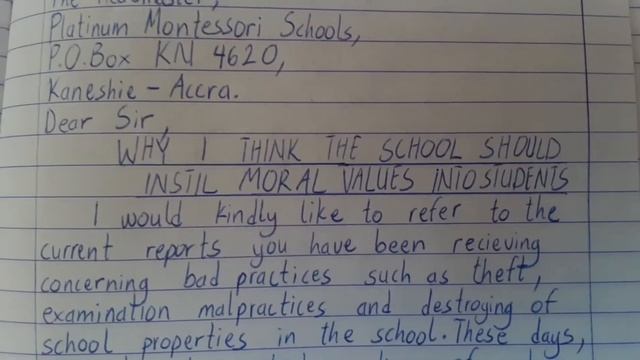 The Headmaster,
Platinum Montessori Schools,
P.O.Box KN 4620,
Kaneshie - Accra.
Dear Sir,
WHY I THINK THE SCHOOL SHOULD
INSTIL MORAL VALUES INTO STUDENTS
I would kindly like to refer to the
current reports you have been recieving
concerning bad practices such as theft,
examination malpractices and destroying of
school properties in the school. These days,